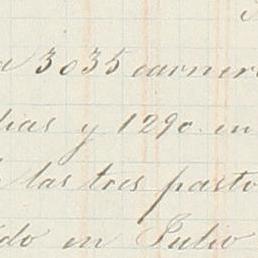 a 3035 carner
dias y 1290. en
las tres pasto
do en Julio